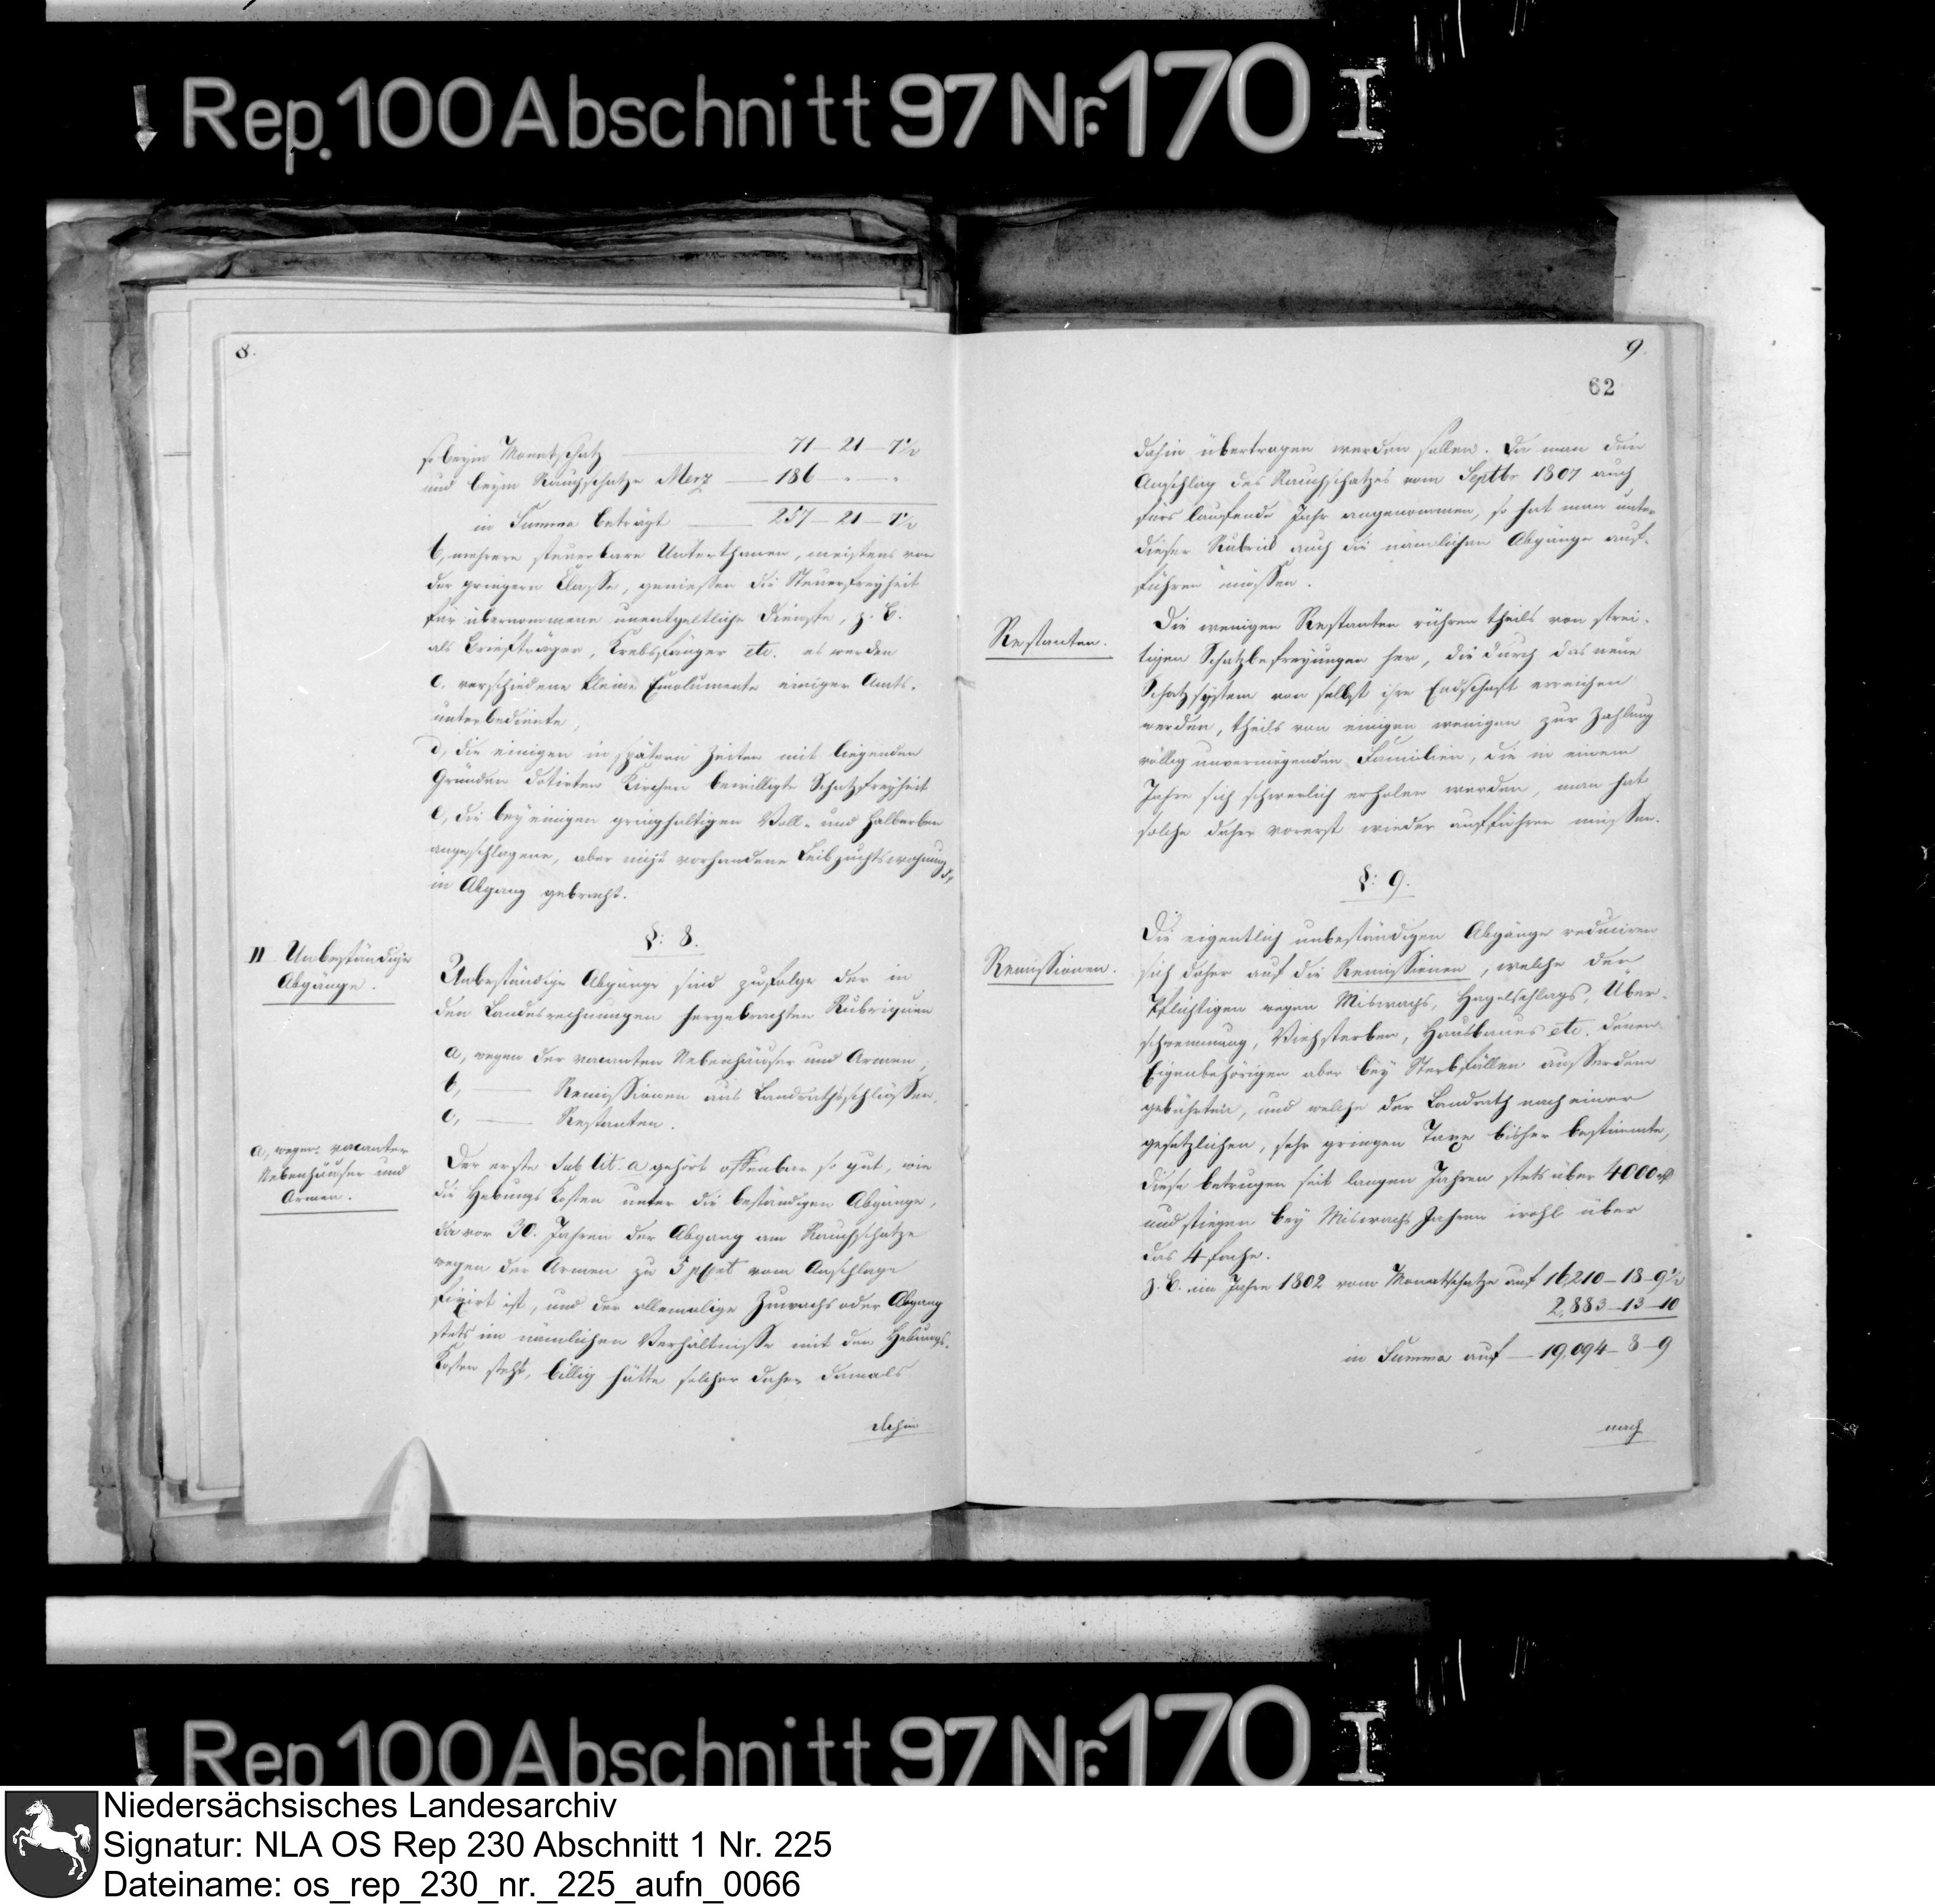 Rep. 100 Abschnitt 97 Nr. 170 I
8.
so beym Monatschatz 71 – 21 – 7½
und beym Rauchschatze Merz — 186 – " – "
in Summa beträgt — 257 – 21 – 7½
b, mehrere steuerbare Unterthanen, meistens von
der geringern Classe, geniessen die Steuerfreyheit
für übernommene unentgeltliche Dienste, z. B.
als Briefträger, Krebsfänger etc. es werden
c, verschiedene kleine Emolumente einiger Amts-
unterbediente,
d, die einigen in spätern Zeiten mit liegenden
Gründen dotirten Kirchen bewilligte Schatzfreyheit
e, die bey einigen geringhaltigen Voll- und Halberben
angeschlagene, aber nicht vorhandene Leibzuchtswohnung
in Abgang gebracht.
§: 8.
II Unbeständige
Abgänge.
Unbeständige Abgänge sind zufolge der in
den Landesrechnungen hergebrachten Rubriquen
a, wegen der vacanten Nebenhäuser und Armen,
b, — Remissionen aus Landrathsschlüssen,
c, — Restanten.
a, wegen vacanter
Nebenhäuser und
Armen.
Der erste sub lit. a gehört offenbar so gut, wie
die Hebungs Kosten unter die beständigen Abgänge,
da vor 30. Jahren der Abgang am Rauchschatze
wegen der Armen zu 5 pCet vom Anschlage
fixirt ist, und der allemalige Zuwachs oder Abgang
stets im nämlichen Verhältnisse mit den Hebungs-
Kosten steht, billig hätte solcher daher damals
dahin
9.
62
dahin übertragen werden sollen. Da man den
Anschlag des Rauchschatzes vom Septbr 1807 auch
fürs laufende Jahr angenommen, so hat man unter
dieser Rubrick auch die nämlichen Abgänge auf-
führen müssen.
Restanten.
Die wenigen Restanten rühren theils von strei-
tigen Schatzbefreyungen her, die durch das neue
Schatzsystem von selbst ihre Endschaft erreichen
werden, theils von einigen wenigen zur Zahlung
völlig unvermögenden Familien, die in einem
Jahre sich schwerlich erholen werden, man hat
solche daher vorerst wieder aufführen müssen.
§: 9.
Remissionen.
Die eigentlich unbeständigen Abgänge reduciren
sich daher auf die Remissionen, welche den
Pflichtigen wegen Miswachs, Hagelschlags, Über-
schwemmung, Viehsterben, Hausbaues etc. denen
Eigenbehörigen aber bey Sterbfällen ausserdem
gebührten, und welche der Landrath nach einer
gesetzlichen, sehr geringen Taxe bisher bestimmte,
diese betrugen seit langen Jahren stets über 4000 rt
und stiegen bey Miswachs Jahren wohl über
das 4 fache.
z. B. im Jahre 1802 vom Monatschatze auf 16,210 – 18 – 9½
2,883 – 13 – 10
in Summa auf — 19,094 – 8 – 9
nach
Rep 100 Abschnitt 97 Nr. 170 I
Niedersächsisches Landesarchiv
Signatur: NLA OS Rep 230 Abschnitt 1 Nr. 225
Dateiname: os_rep_230_nr._225_aufn_0066